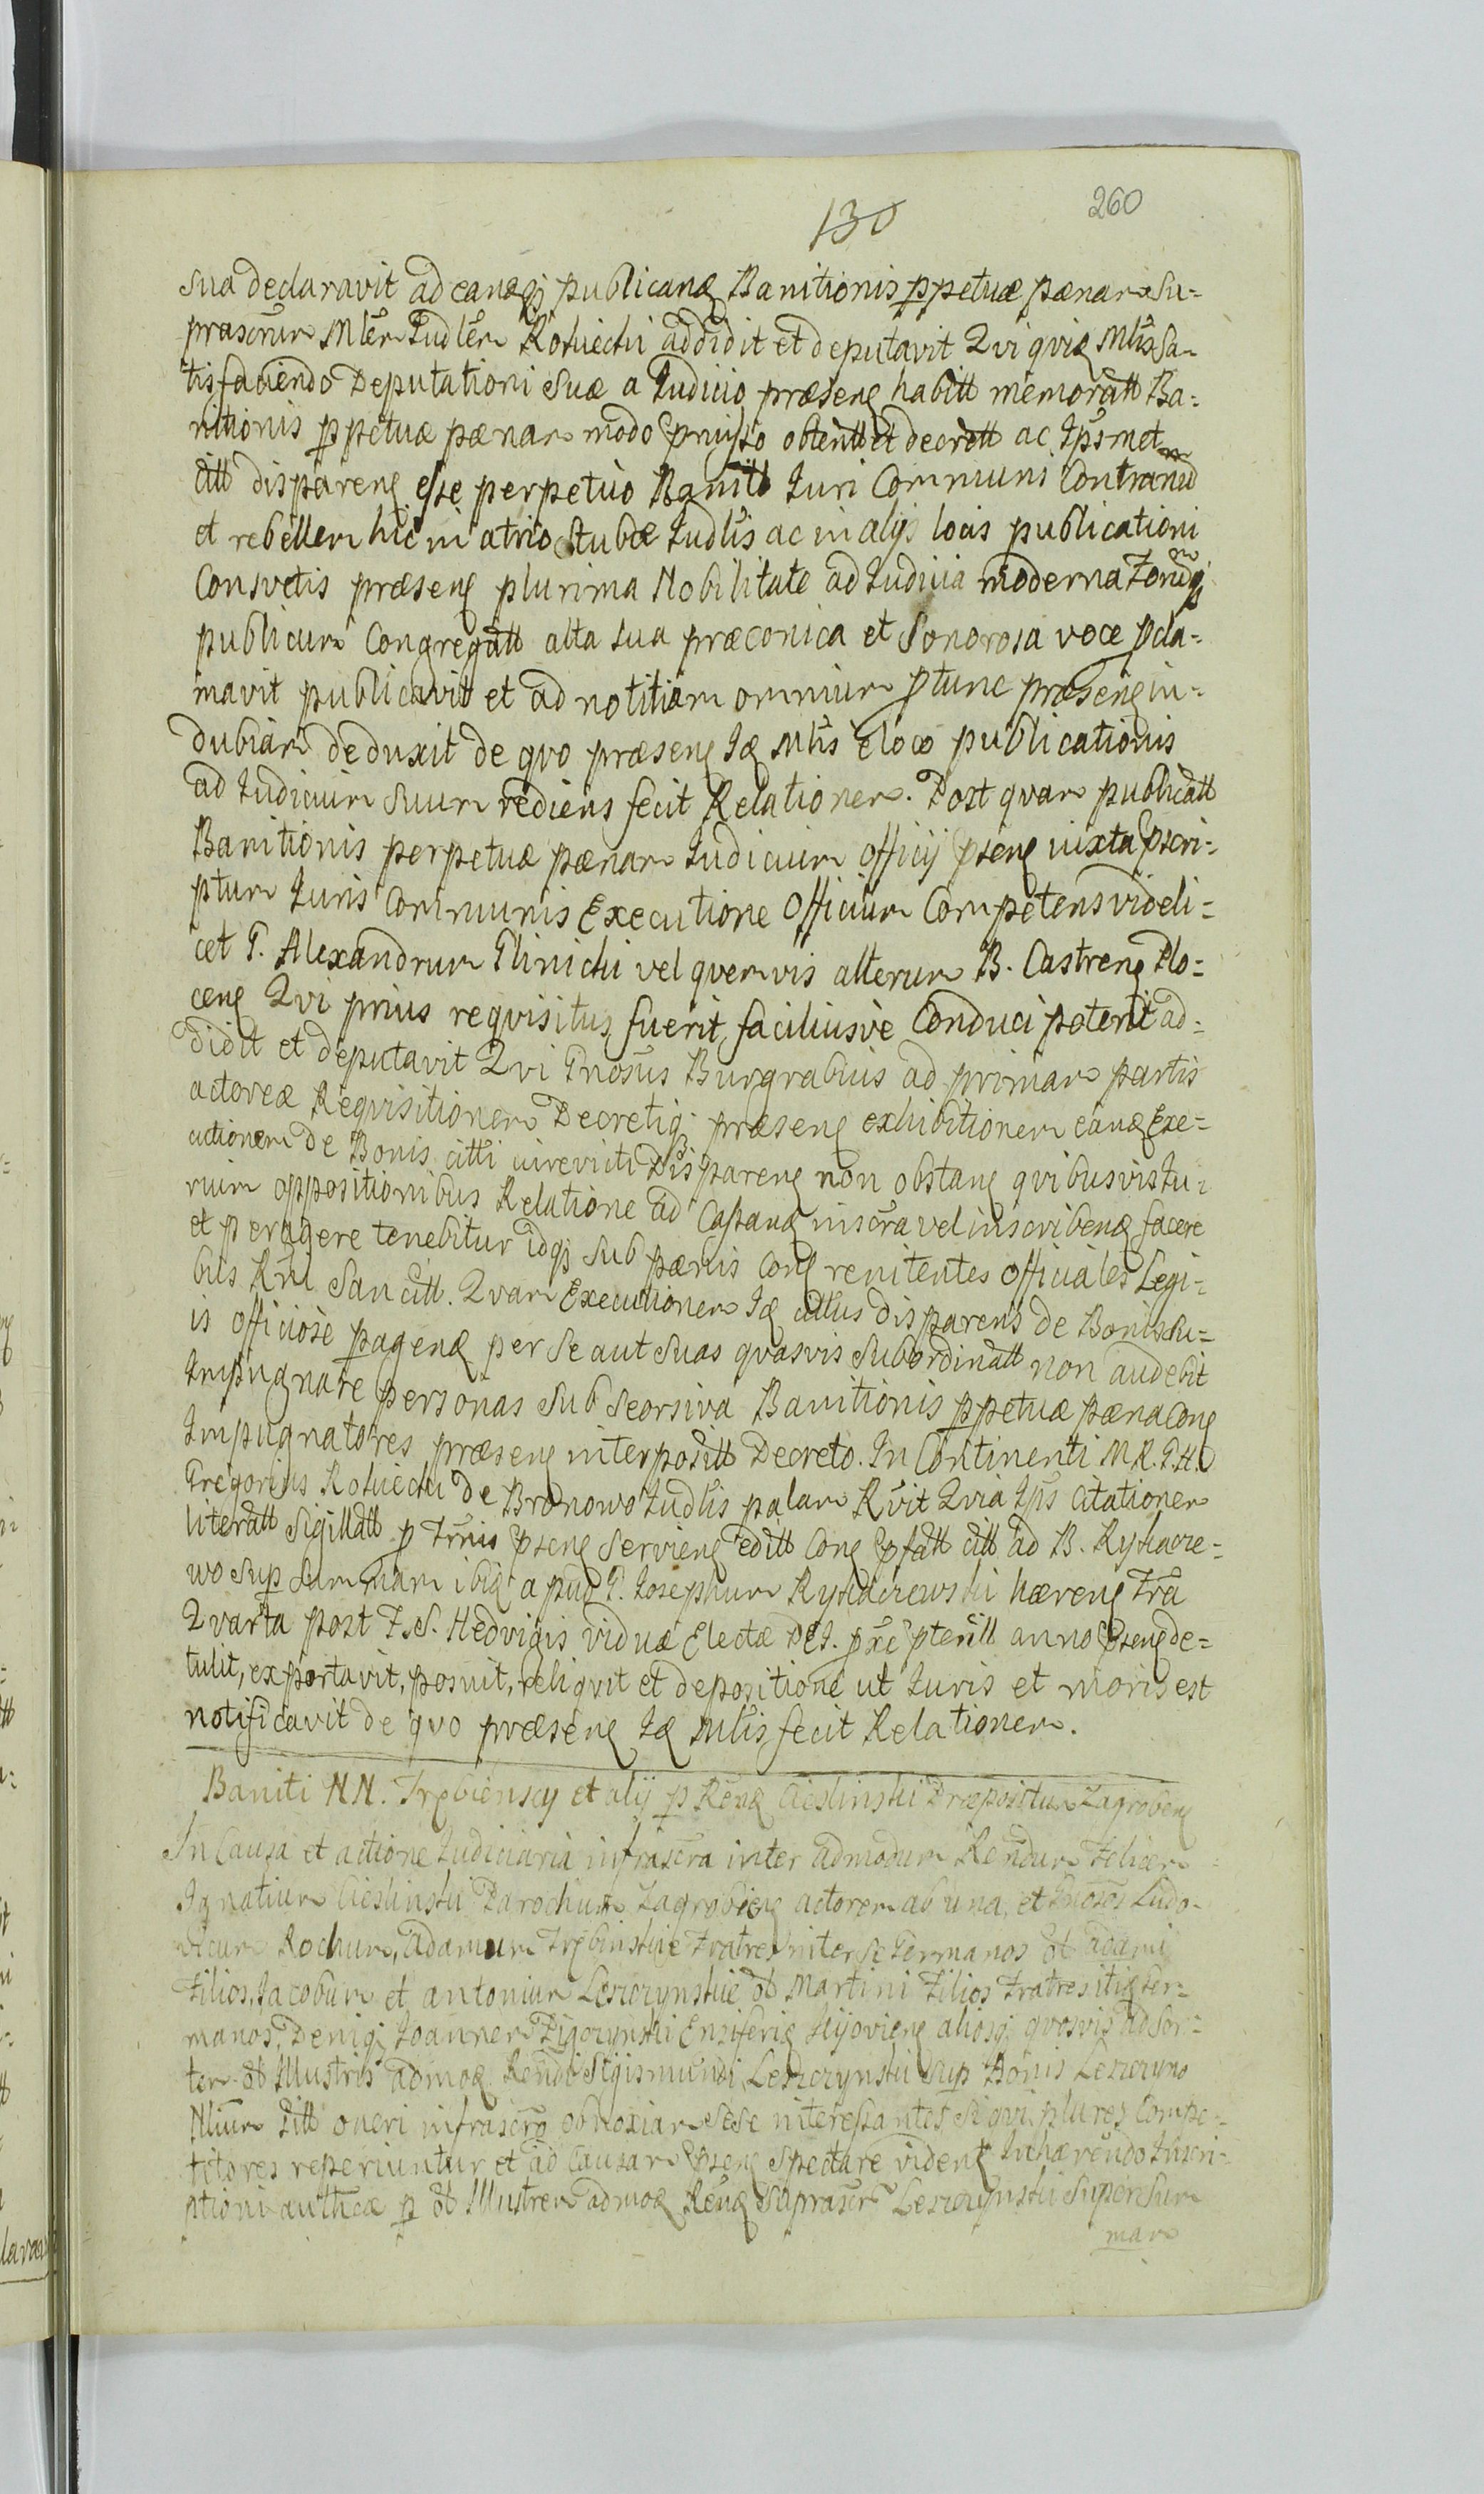 260
130
sua declaravit ad eandq; publicand Banitionis ppetuæ pænam su-
prascrum Mlem Judlem Kotuecki addidit et deputavit Qvi qvid Mlis sa-
tisfaciendo Deputationi suæ a Judicio præsens habitt memoratt Ba-
nitionis ppetuæ pænam modo pmisso obtentt et decrett ac Ipsmet
citt disparens esse perpetuo Banitt Juri Communi Contrarium
et rebellem hic in atrio stubæ Judlis ac in alijs locis publicationi
Consvetis præsens plurima Nobilitate ad Judicia moderna Forumq;
publicum Congregatt alta sua præconica et Sonorosa voce pcla-
mavit publicavit et ad notitiam omnium ptunc præsens in-
dubiam deduxit de qvo præsens Id Mlis e loco publicationis
ad Judicium suum rediens fecit Relationem. Post qvam publicatt
Banitionis perpetuæ pænam Judicium officij psens iuxta pscri-
ptum Juris Communis Executione Officium Competens videli-
cet G. Alexandrum Glinicki vel qvemvis alterum B. Castrens Plo-
cens Qvi prius reqvisitus fuerit, faciliusve Conduci poterit ad-
didit et deputavit Qvi Gnosus Burgrabius ad primam partis
actoreæ Reqvisitionem Decretiq; præsens exhibitionem eand Exe-
cutionem de Bonis citti iurevicti Disparens non obstans qvibusvis Iu-
rium oppositionibus Relatione ad Castand inscra vel inscribend facere
et peragere tenebitur idq; sub pænis Cons renitentes officiales Legi-
bus Rni sancitt. Qvam Executionem Id cittus disparens de Bonis su-
is officiose pagend per se aut suas qvasvis subordinatt non audebit
Impugnare personas sub seorsiva Banitionis ppetuæ pæna Cons
Impugnatores præsens interpositt Decreto. In Continenti M.R.G.H.
Gregorius Kotuecki de Bronowo Judlis palam Rvit Qvia Ips Citationem
literatt Sigillatt p Trmis psens serviens editt Cons pfatt citt ad B. Rychacze-
wo sup summam ibid apud G. Josephum Rychaczewski hærens Fra
Qvarta post F. S. Hedvigis viduæ Electæ DEJ. pxe pteritt anno psens de-
tulit, exportavit, posuit, reliqvit et depositione ut Juris et moris est
notificavit de qvo præsens Id Mlis fecit Relationem.
Baniti NN. Trębienscy et alij p Rend Cieslinski Præpositum Zagrobens
In Causa et actione Judiciaria infrascra inter admodum Rendum Felicem
Ignatium Cieslinski Parochum Zagrobiens actorem ab una, et Gnosos Ludo-
vicum Rochum, Adamum Trębinskie Fratres inter se Germanos ot Adami
Filios, Jacobum et Antonium Leszczynskie ot Martini Filios Fratres itid Ger-
manos, Deniq; Joannem Zigczynski Ensiferid Kijoviens aliosq; qvosvis ad sor-
tem ot Illustris admod Rendi Sigismundi Leszczynski sup Bonis Leszczyno
Nlium Pitt oneri infrascro obnoxiam sese interessantes si qvi plures Compe-
titores reperiuntur et ad Causam psens spectare videns Inhærendo Inscri-
ptioni autheæ p ot Illustrem admod Rend suprascr Leszczynski super sum
mam